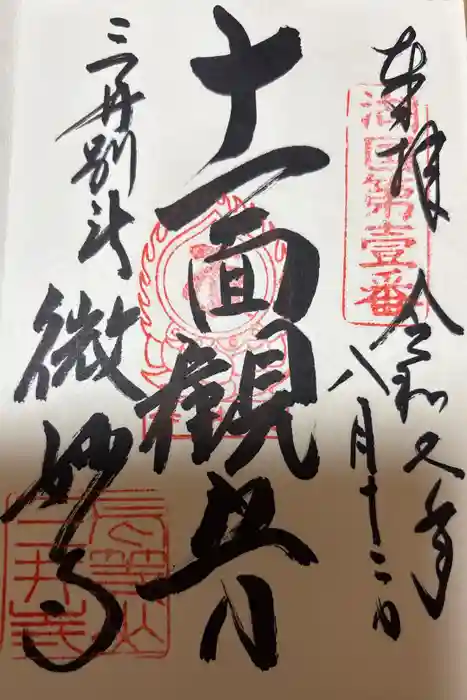 奉拝 令和 年
八月十二日
湖国第壹番
十一面観世音
三井別所
微妙寺